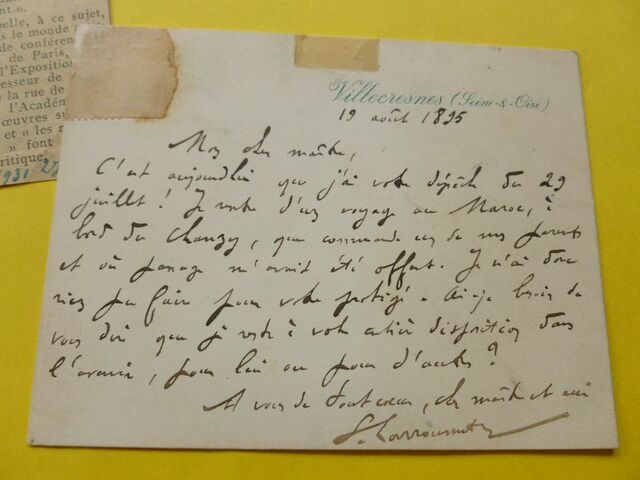 nt ».
pelle, à ce sujet,
s le monde
de conféren
de Paris,
l'Exposition
esseur de
la rue de
l'Acadé
œuvres su
et « les
» font
ritique.
1931
Villecresnes (Seine-&-Oise)
19 août 1895
Mon cher maître,
C'est aujourd'hui que j'ai votre dépêche du 29
juillet ! Je rentre d'un voyage au Maroc, à
bord du Chanzy, que commande un de mes parents
et où passage m'avait été offert. Je n'ai donc
rien pu faire pour votre protégé. Ai-je besoin de
vous dire que je reste à votre entière disposition dans
l'avenir, pour lui ou pour d'autres ?
A vous de tout cœur, cher maître et ami
G. Larroumet